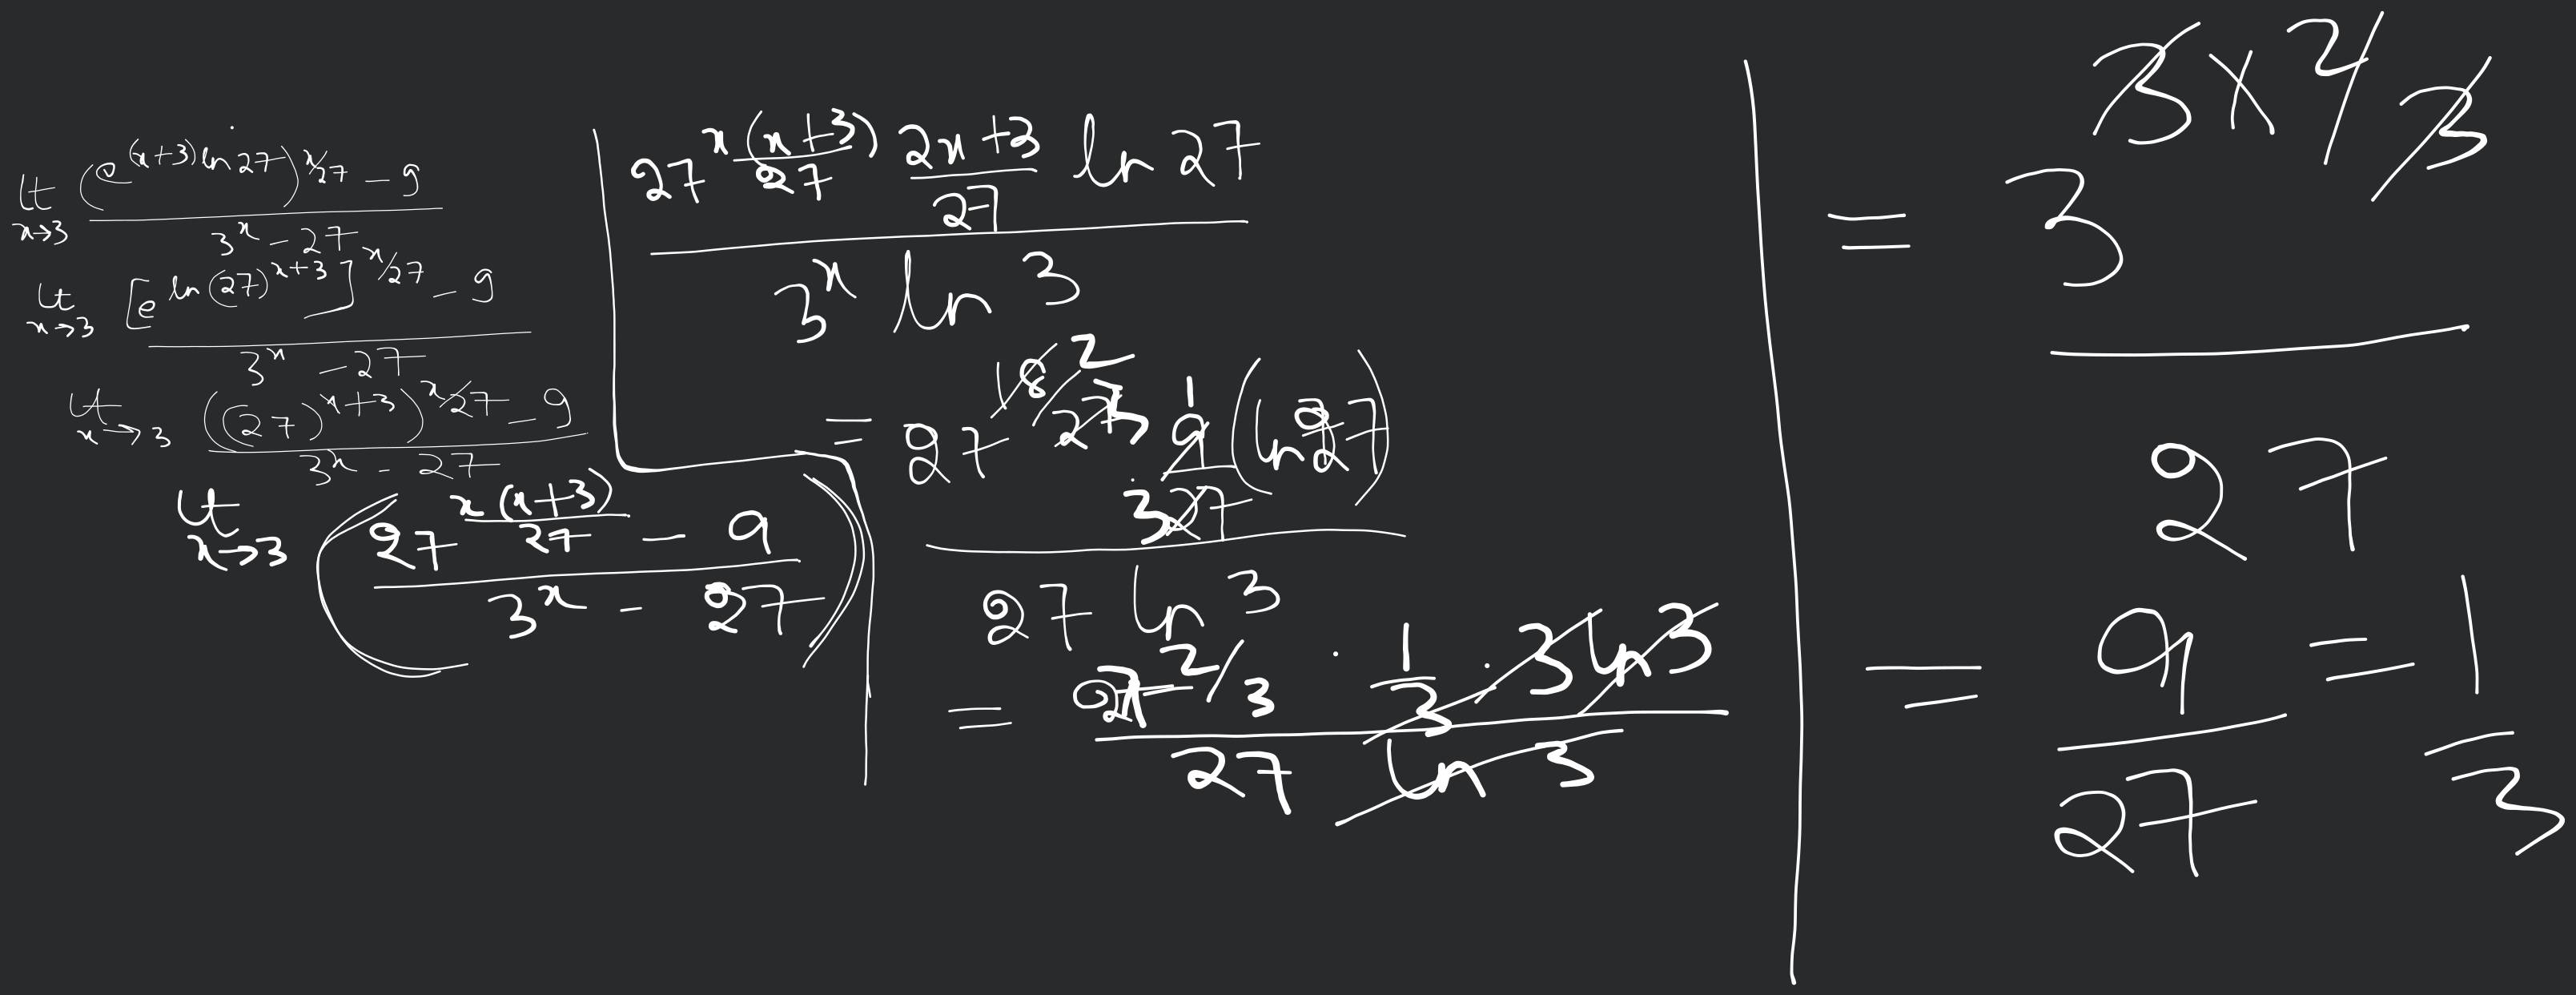 lt x→3 (e^{(x+3) ln 27})^{x/27} - 9 / 3^x - 27
lt x→3 [e^{ln (27)^{x+3}}]^{x/27} - 9 / 3^x - 27
lt x→3 ((27)^{x+3})^{x/27} - 9 / 3^x - 27
lt x→3 (27^{x(x+3)/27} - 9 / 3^x - 27)
27^{x(x+3)/27} (2x+3)/27 ln 27 / 3^x ln 3
= 27^{18/27 2/3} 9/27 1/3 (ln 27) / 27 ln 3
= 27^{2/3} · 1/3 · 3 ln 3 / 27 ln 3
= 3^{3×2/3} / 27
= 9/27 = 1/3